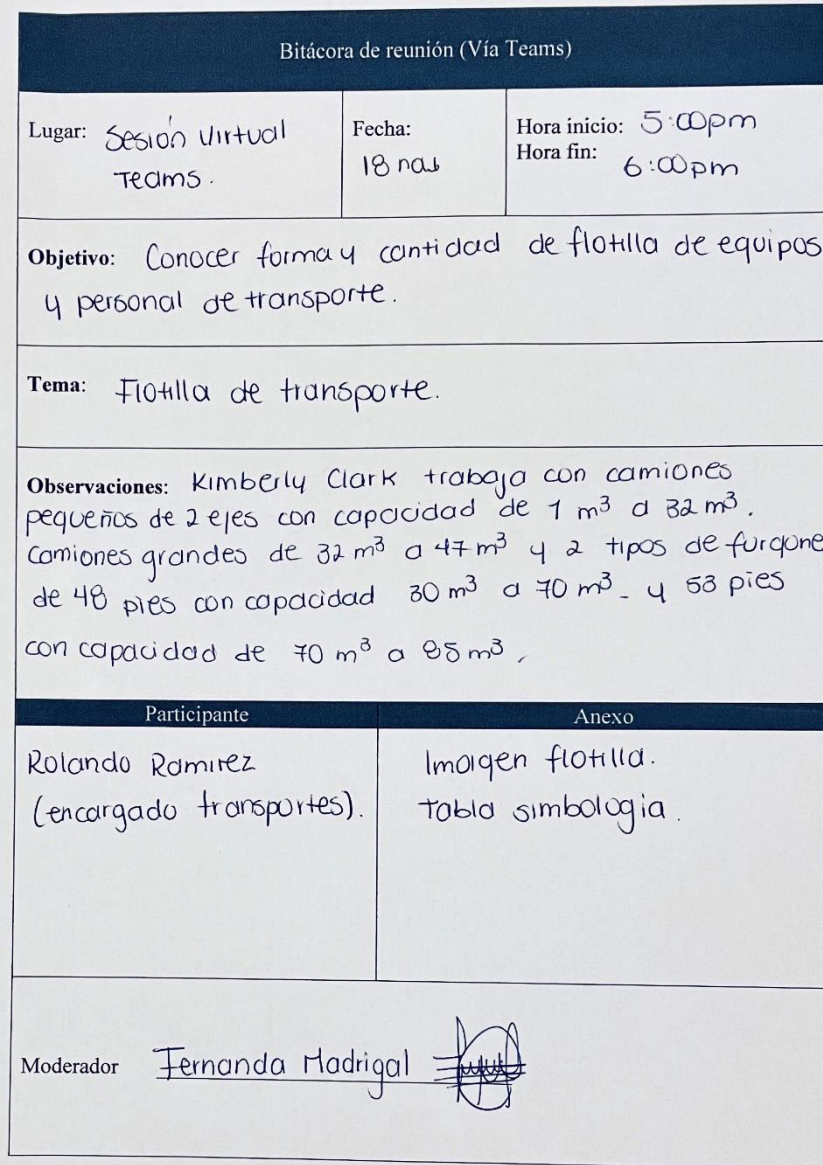 Bitácora de reunión (Vía Teams)
Lugar: Sesión Virtual
Teams.
Fecha:
18 nov
Hora inicio: 5:00pm
Hora fin: 6:00pm
Objetivo: Conocer forma y cantidad de flotilla de equipos
y personal de transporte.
Tema: Flotilla de transporte.
Observaciones: Kimberly Clark trabaja con camiones
pequeños de 2 ejes con capacidad de 1 m³ a 32 m³.
Camiones grandes de 32 m³ a 47 m³ y 2 tipos de furgone
de 48 pies con capacidad 30 m³ a 70 m³. y 53 pies
con capacidad de 70 m³ a 85 m³.
Participante
Rolando Ramirez
(encargado transportes).
Anexo
Imagen flotilla.
Tabla simbologia.
Moderador Fernanda Madrigal